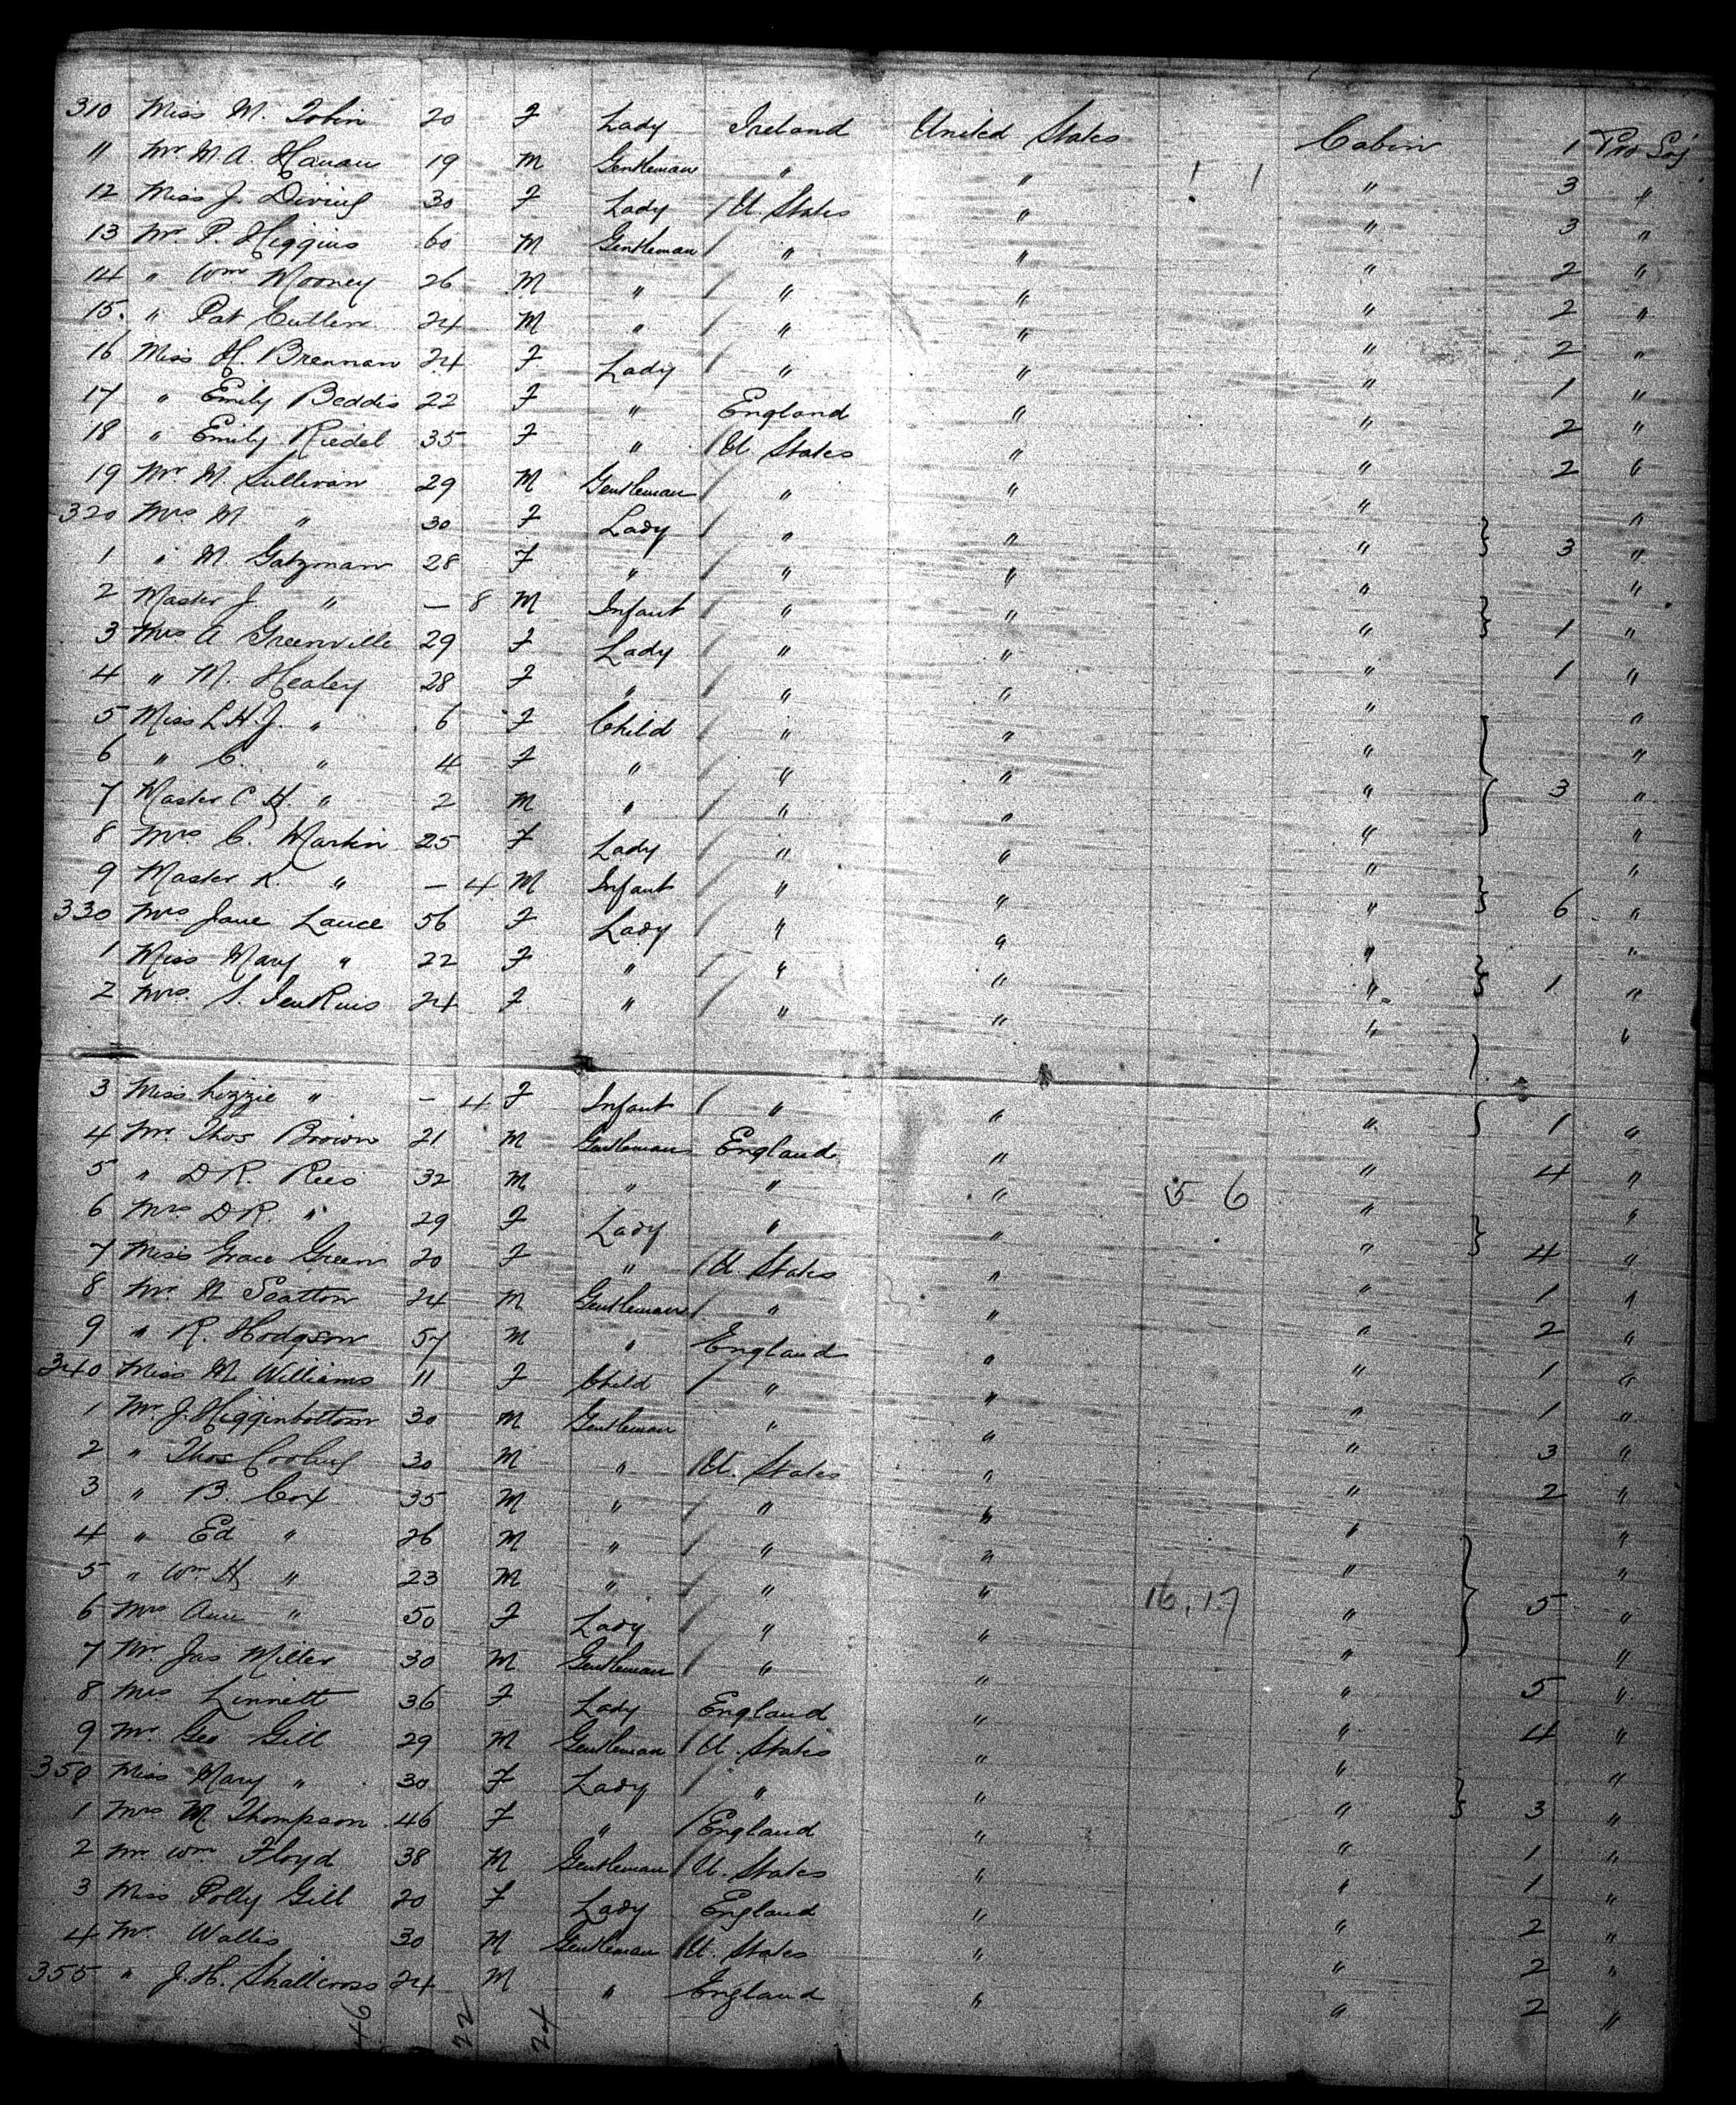 310 Miss M. Tobin 20 F Lady Ireland United States Cabin 1 Pro Soj
11 Mr. M. A. Hanan 19 M Gentleman " " 1 1 " 3 "
12 Miss J. 30 F Lady / U States " " 3 "
13 Mr. P. Higgins 60 M Gentleman / " " " 2 "
14 " Wm Mooney 26 M " / " " " 2 "
15. " Pat Cullen 24 M " / " " " 2 "
16 Miss H. Brennan 24 F Lady " " " 1 "
17 " Emily Beddis 22 F " England " " 2 "
18 " Emily Riedel 35 F " / U States " " 2 "
19 Mr. M. Sullivan 29 M Gentleman / " " " "
320 Mrs M " 30 F Lady / " " " } 3 "
1 " M. Gatzman 28 F " / " " " "
2 Master J. " — 8 M Infant / " " " } 1 "
3 Mrs A Greenville 29 F Lady / " " " 1 "
4 " M. Healey 28 F " / " " " "
5 Miss L. H. J. " 6 F Child / " " " "
6 " C. " 4 F " / " " " } 3 "
7 Master C. H. " 2 M " / " " " "
8 Mrs C. Martin 25 F Lady / " " " "
9 Master K. " — 4 M Infant / " " " } 6 "
330 Mrs Jane Lance 56 F Lady / " " " "
1 Miss Mary " 22 F " / " " " } 1 "
2 Mrs. S. Jenkins 24 F " / " " " "
3 Miss Lizzie " — 4 F Infant / " " " } 1 "
4 Mr. Thos Brown 21 M Gentleman England " " 4 "
5 " D R. Rees 32 M " " " 5 6 " "
6 Mrs D R. " 29 F Lady " " " } 4 "
7 Miss Grace Green 20 F " / U States " " 1 "
8 Mr. N Scatton 24 M Gentleman / " " " 2 "
9 " R. Hodgson 57 M " England " " 1 "
340 Miss M. Williams 11 F Child / " " " 1 "
1 Mr. J. Higginbottom 30 M Gentleman " " " 3 "
2 " Thos Cooling 30 M " / U. States " " 2 "
3 " B. Cox 35 M " / " " " "
4 " Ed " 26 M " / " " " "
5 " Wm H " 23 M " / " " 16, 17 " } 5 "
6 Mrs Ann " 50 F Lady / " " " "
7 Mr. Jas Miller 30 M Gentleman / " " " 5 "
8 Mrs Linnett 36 F Lady England " " 4 "
9 Mr. Geo Gill 29 M Gentleman / U. States " " "
350 Miss Mary " 30 F Lady / " " " } 3 "
1 Mrs M. Thompson 46 F " / England " " 1 "
2 Mr. Wm Floyd 38 M Gentleman / U. States " " 1 "
3 Miss Polly Gill 20 F Lady England " " 2 "
4 Mr. Wallis 30 M Gentleman / U. States " " 2 "
355 " J. H. Shallcross 24 M " England " " 2 "
46 22 24